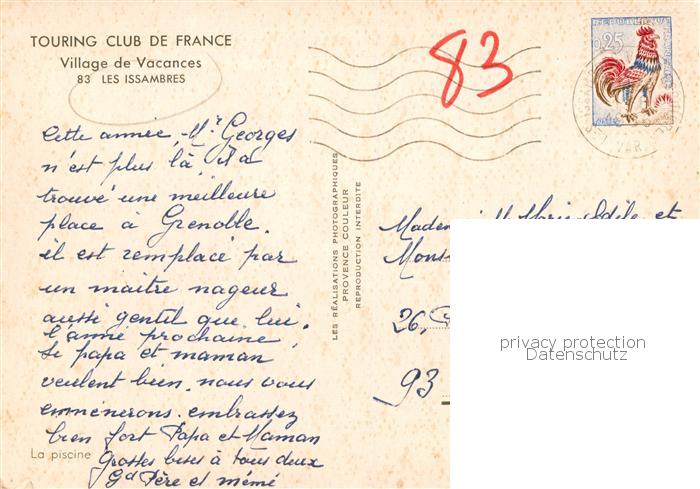 TOURING CLUB DE FRANCE
Village de Vacances
83 LES ISSAMBRES
83
REPUBLIQUE
0,25
VAR
Cette année, Mr Georges
n'est plus là, il a
trouvé une meilleure
place à Grenoble.
il est remplacé par
un maitre nageur
aussi gentil que lui.
l'année prochaine,
si papa et maman
veulent bien, nous vous
emmènerons. embrassez
bien fort Papa et Maman
Grosses bises à tous deux
Gd Père et mémé
La piscine
LES RÉALISATIONS PHOTOGRAPHIQUES
PROVENCE COULEUR
REPRODUCTION INTERDITE
Marie-Adile et
26,
93
privacy protection
Datenschutz